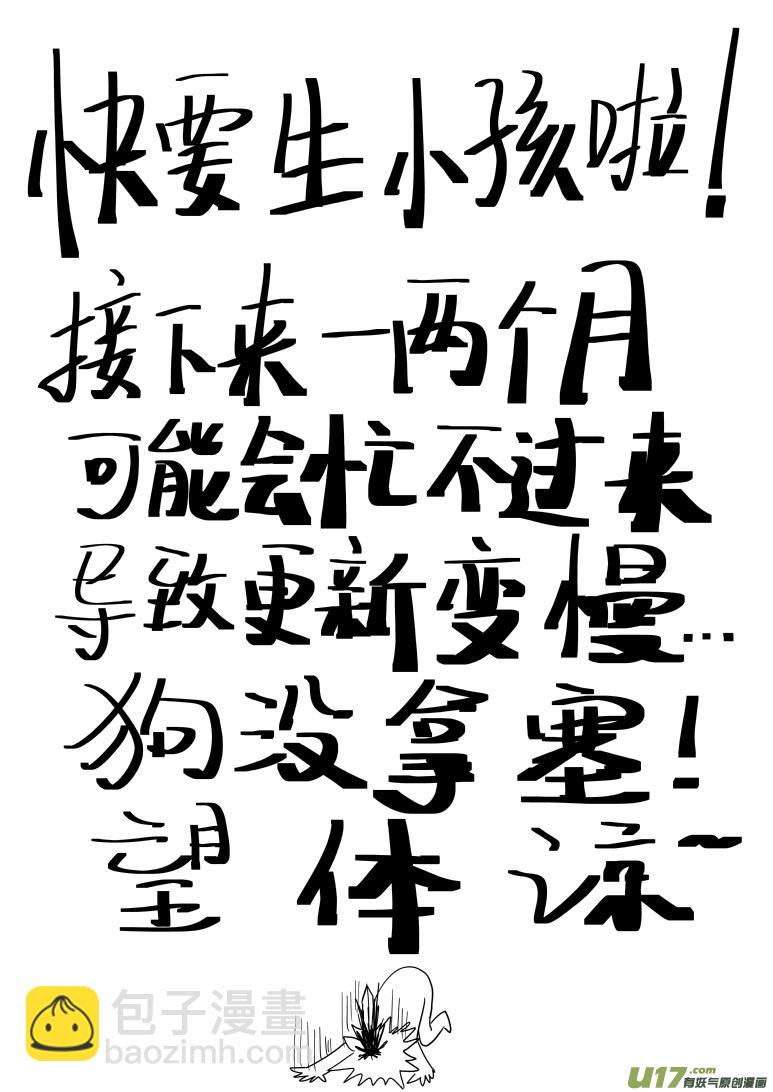 快要生小孩啦！
接下来一两个月
可能会忙不过来
导致更新变慢...
狗没拿塞！
望 体 谅~
包子漫畫
baozimh.com
U17.com
有妖气原创漫画